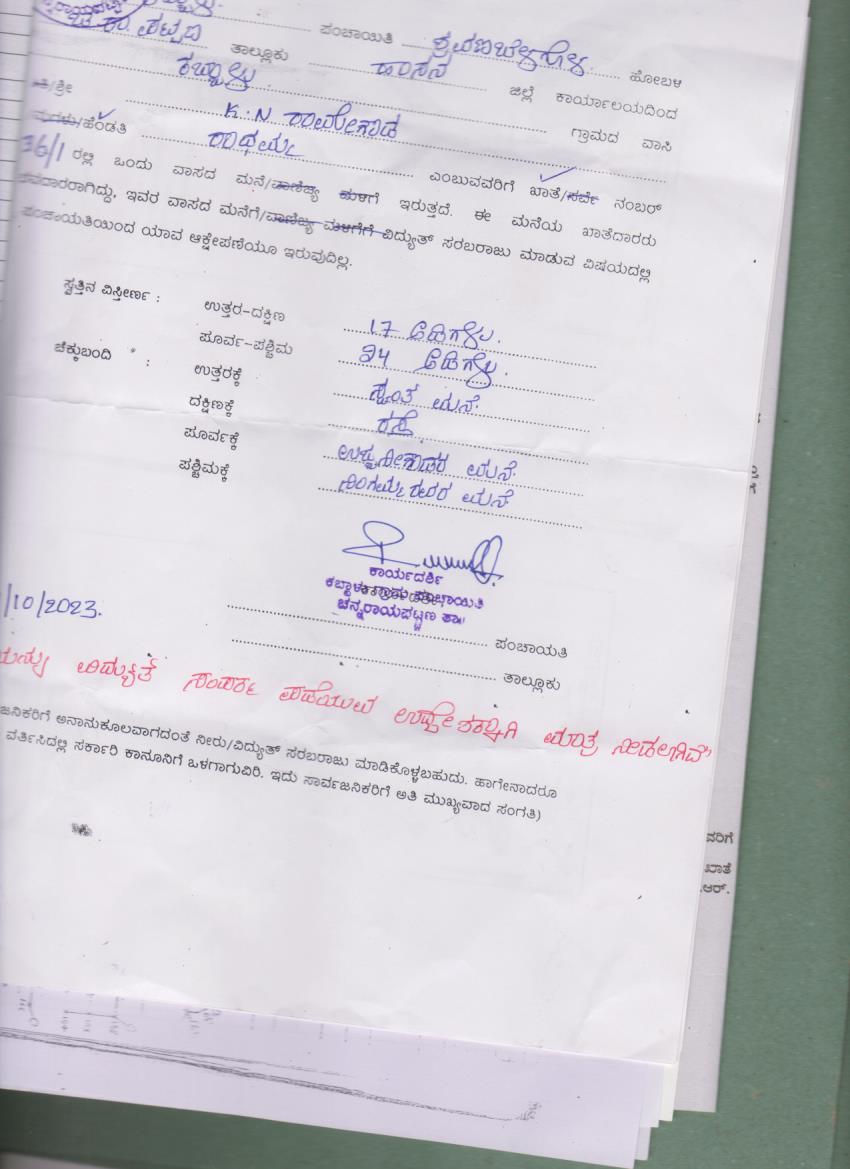 ಪಂಚಾಯಿತಿ ಶ್ರವಣಬೆಳಗೊಳ ಹೋಬಳಿ
ಚ.ರಾ.ಪಟ್ಟಣ ತಾಲ್ಲೂಕು ಹಾಸನ ಜಿಲ್ಲೆ ಕಾರ್ಯಾಲಯದಿಂದ
ಕಬ್ಬಾಳು ಗ್ರಾಮದ ವಾಸಿ
/ಶ್ರೀ K.N ರಾಮೇಗೌಡ
ಮಗಳು/ಹೆಂಡತಿ ರಾಧಮ್ಮ ಎಂಬುವವರಿಗೆ ಖಾತೆ/ಸರ್ವೆ ನಂಬರ್
36/1 ರಲ್ಲಿ ಒಂದು ವಾಸದ ಮನೆ/ವಾಣಿಜ್ಯ ಮಳಿಗೆ ಇರುತ್ತದೆ. ಈ ಮನೆಯ ಖಾತೆದಾರರು
ಇವರ ವಾಸದ ಮನೆಗೆ/ವಾಣಿಜ್ಯ ಮಳಿಗೆಗೆ ವಿದ್ಯುತ್ ಸರಬರಾಜು ಮಾಡುವ ವಿಷಯದಲ್ಲಿ
ಪಂಚಾಯತಿಯಿಂದ ಯಾವ ಆಕ್ಷೇಪಣೆಯೂ ಇರುವುದಿಲ್ಲ.
ಸ್ವತ್ತಿನ ವಿಸ್ತೀರ್ಣ : ಉತ್ತರ-ದಕ್ಷಿಣ 17 ಅಡಿಗಳು.
ಪೂರ್ವ-ಪಶ್ಚಿಮ 24 ಅಡಿಗಳು.
ಚೆಕ್ಕುಬಂದಿ : ಉತ್ತರಕ್ಕೆ ಸ್ವಂತ ಮನೆ.
ದಕ್ಷಿಣಕ್ಕೆ ರಸ್ತೆ
ಪೂರ್ವಕ್ಕೆ ಮನೆ.
ಪಶ್ಚಿಮಕ್ಕೆ ಮನೆ
ಕಾರ್ಯದರ್ಶಿ
ಕಬ್ಬಾಳು ಗ್ರಾಮ ಪಂಚಾಯಿತಿ
ಚನ್ನರಾಯಪಟ್ಟಣ ತಾ||
/10/2023.
ಪಂಚಾಯತಿ
ತಾಲ್ಲೂಕು
ವಿದ್ಯುತ್ ಸಂಪರ್ಕ ಪಡೆಯುವ ಉದ್ದೇಶಕ್ಕಾಗಿ ಮಾತ್ರ ನೀಡಲಾಗಿದೆ"
ಜನಿಕರಿಗೆ ಅನಾನುಕೂಲವಾಗದಂತೆ ನೀರು/ವಿದ್ಯುತ್ ಸರಬರಾಜು ಮಾಡಿಕೊಳ್ಳಬಹುದು. ಹಾಗೇನಾದರೂ
ವರ್ತಿಸಿದಲ್ಲಿ ಸರ್ಕಾರಿ ಕಾನೂನಿಗೆ ಒಳಗಾಗುವಿರಿ. ಇದು ಸಾರ್ವಜನಿಕರಿಗೆ ಅತಿ ಮುಖ್ಯವಾದ ಸಂಗತಿ)
ವರಿಗೆ
ಖಾತೆ
.ಆರ್.